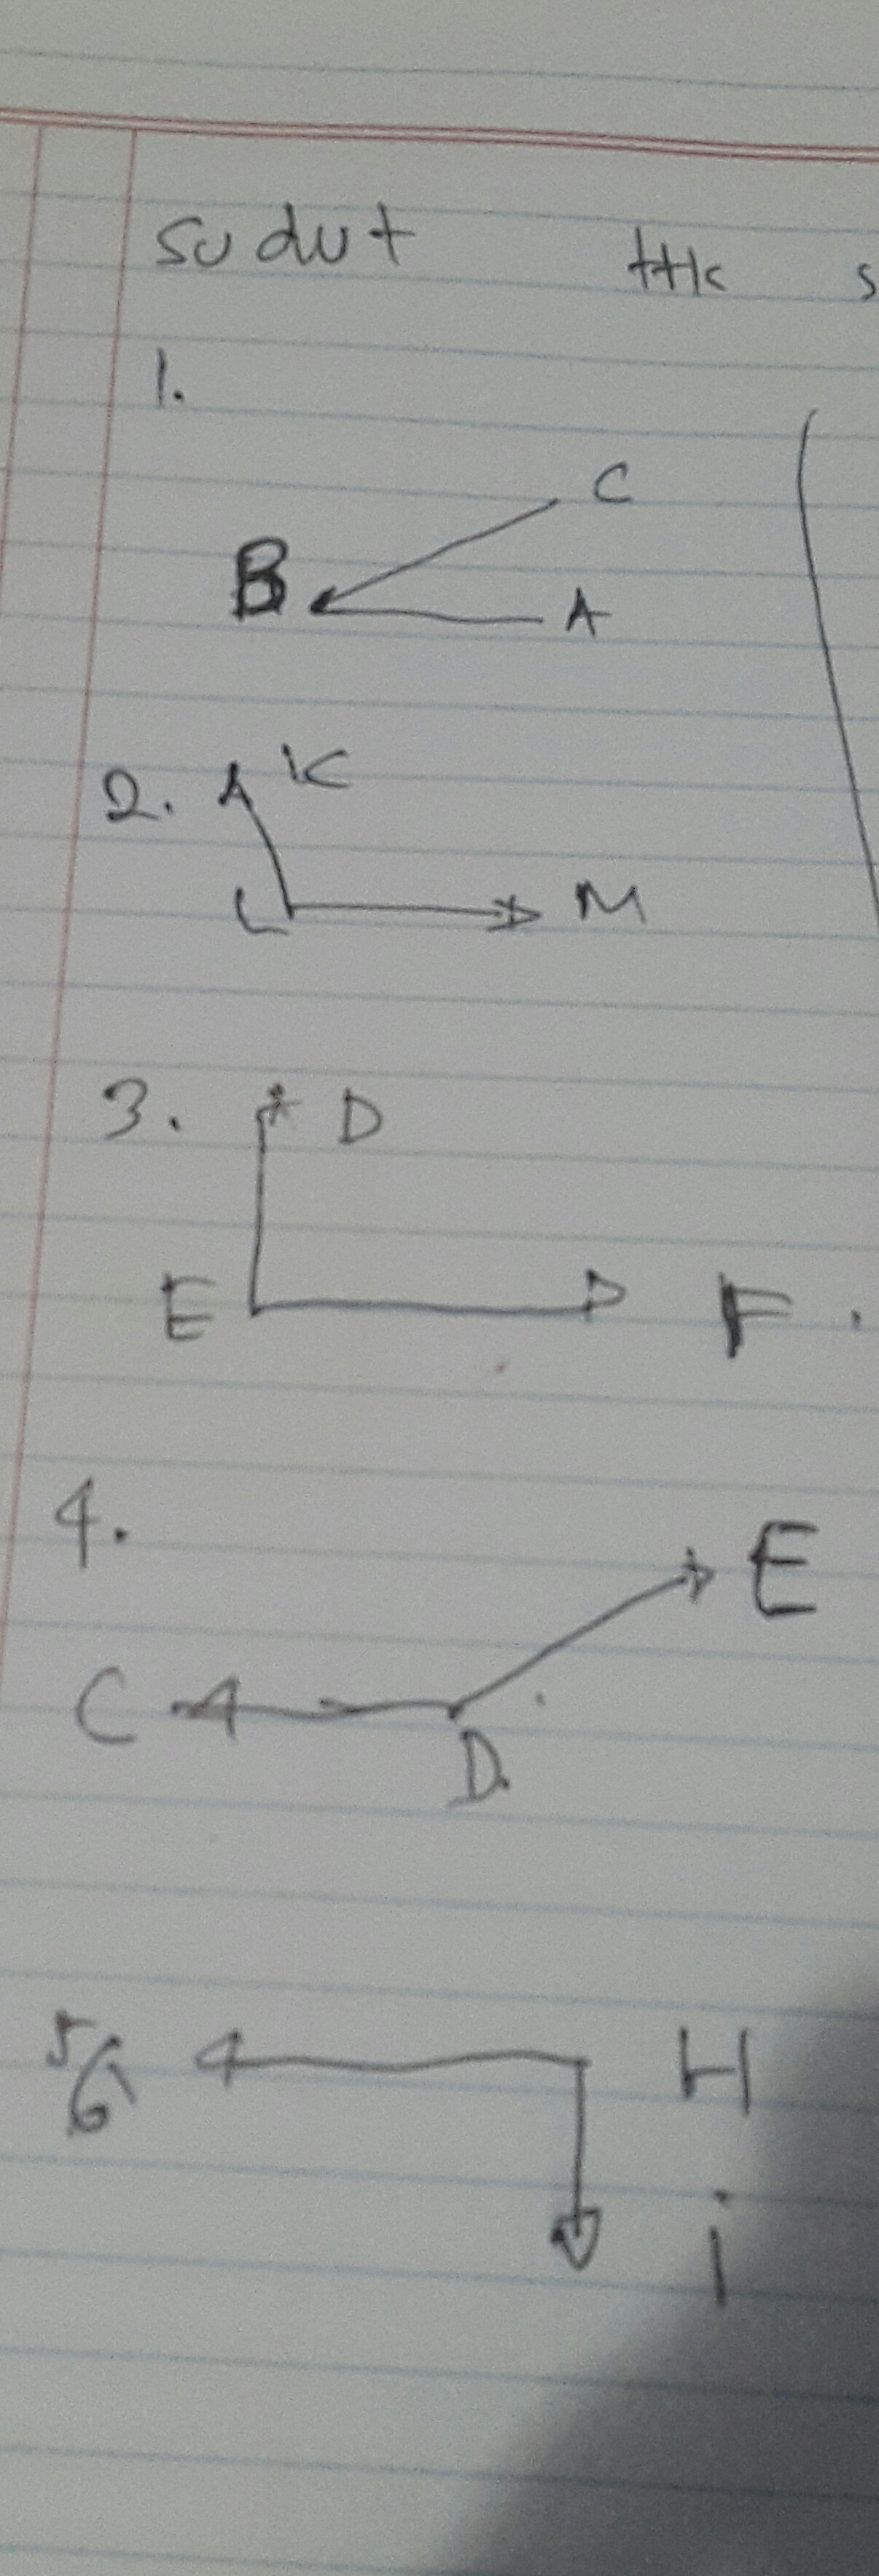 sudut ttk s
1.
C
B A
2. K
L M
3. D
E F.
4. E
C
D.
5 G H
i